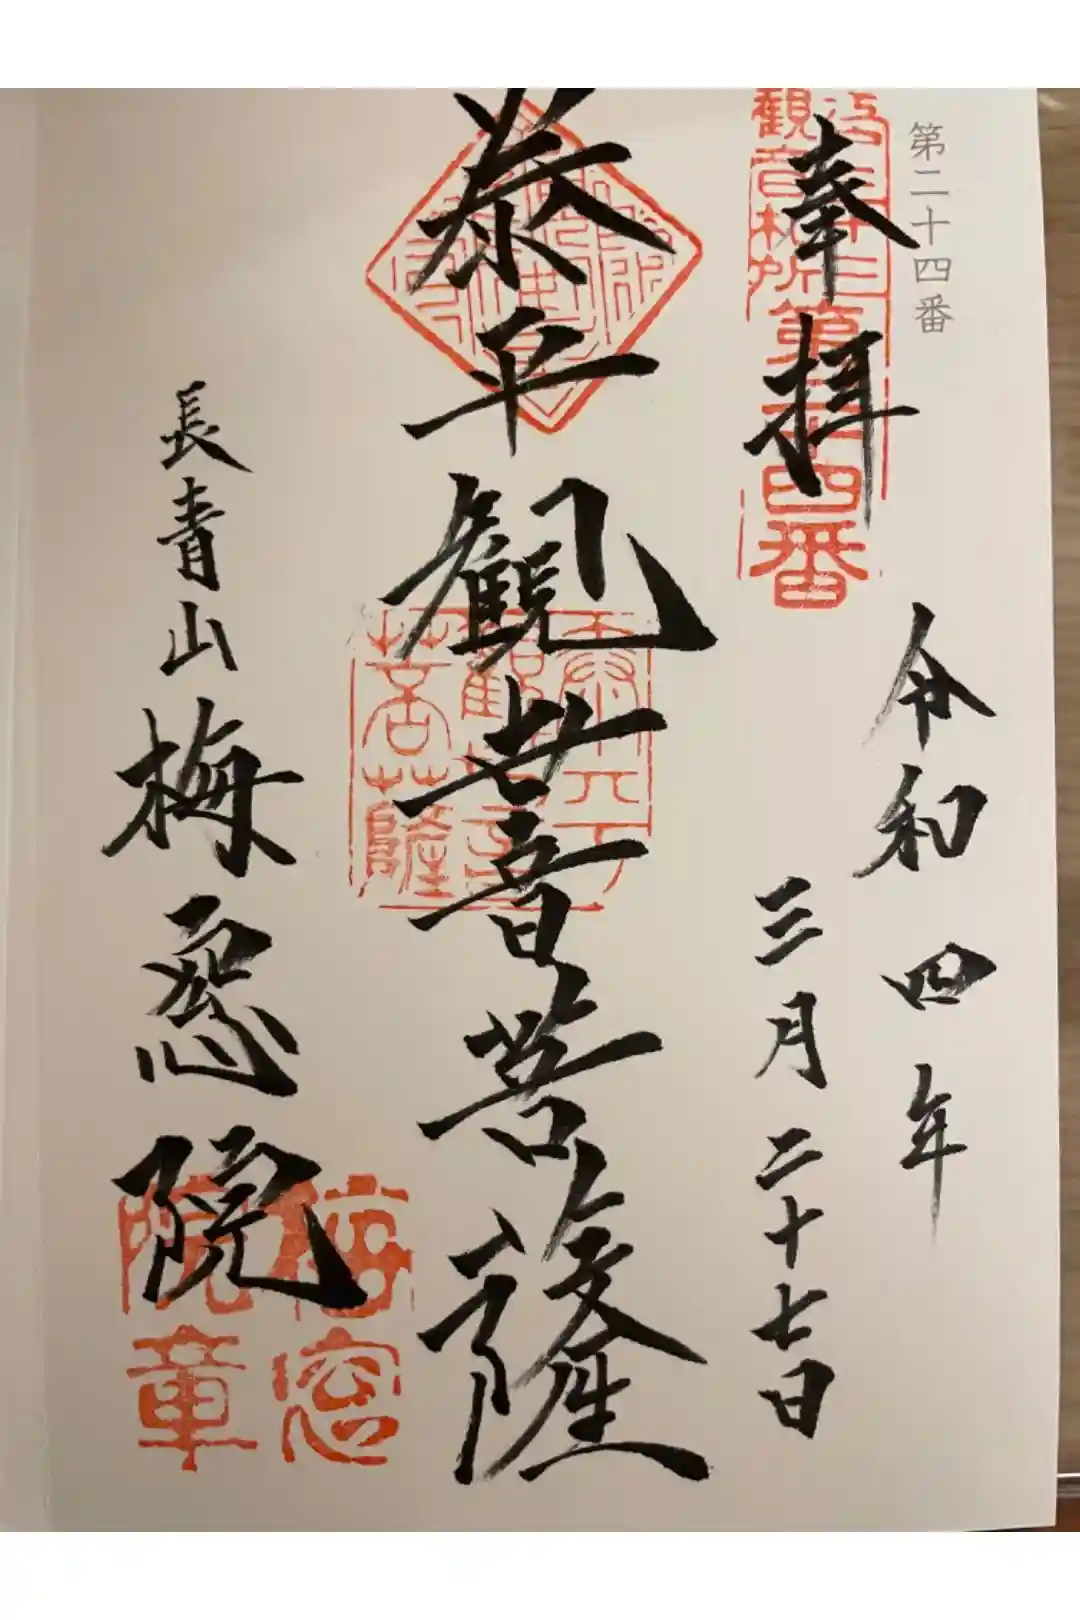 第二十四番
奉拝
令和四年
三月二十七日
泰平観世音菩薩
長青山梅窓院
観音札所第二十四番
泰平観世音菩薩
梅窓院章